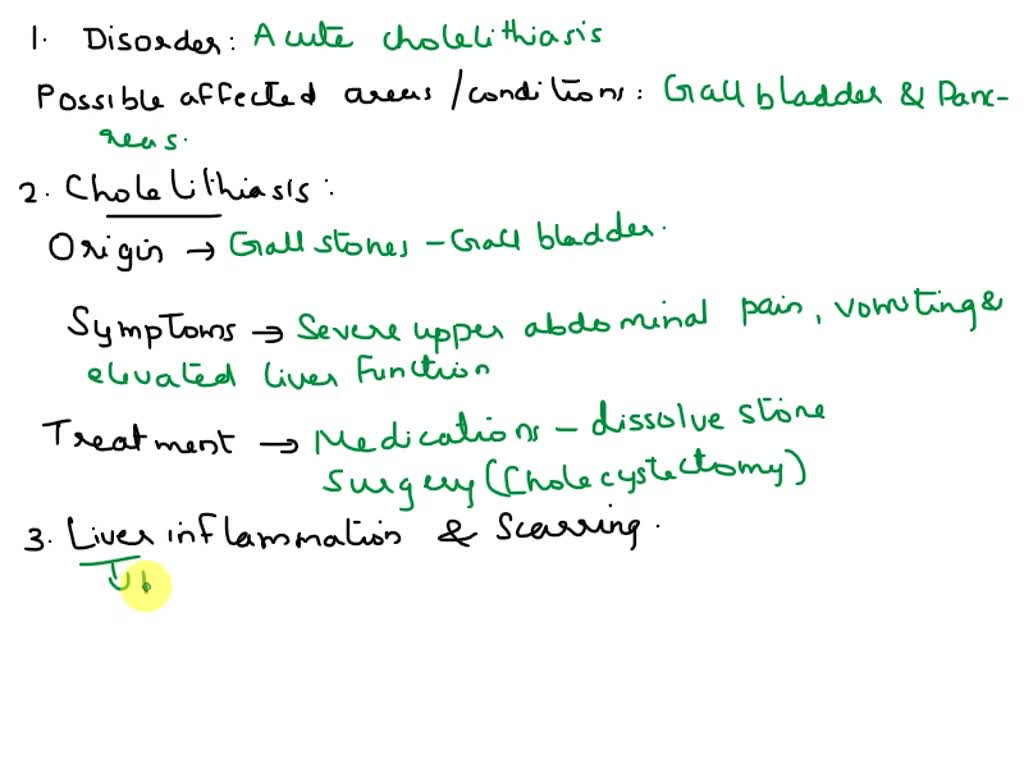 1. Disorder: Acute cholelithiasis
Possible affected areas/conditions: Gall bladder & Panc-
reas.
2. Cholelithiasis:
Origin → Gall stones - Gall bladder.
Symptoms → Severe upper abdominal pain, vomiting &
elevated liver Function
Treatment → Medications - dissolve stone
Surgery (Cholecystectomy)
3. Liver inflammation & Scarring.